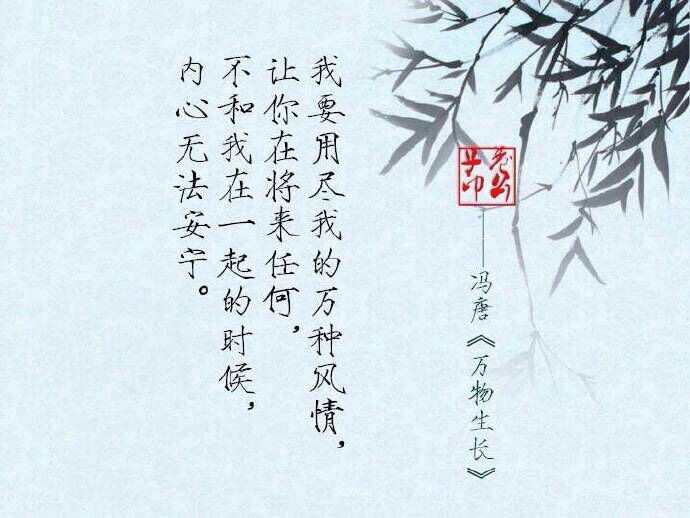 我要用尽我的万种风情，
让你在将来任何，
不和我在一起的时候，
内心无法安宁。
——冯唐《万物生长》